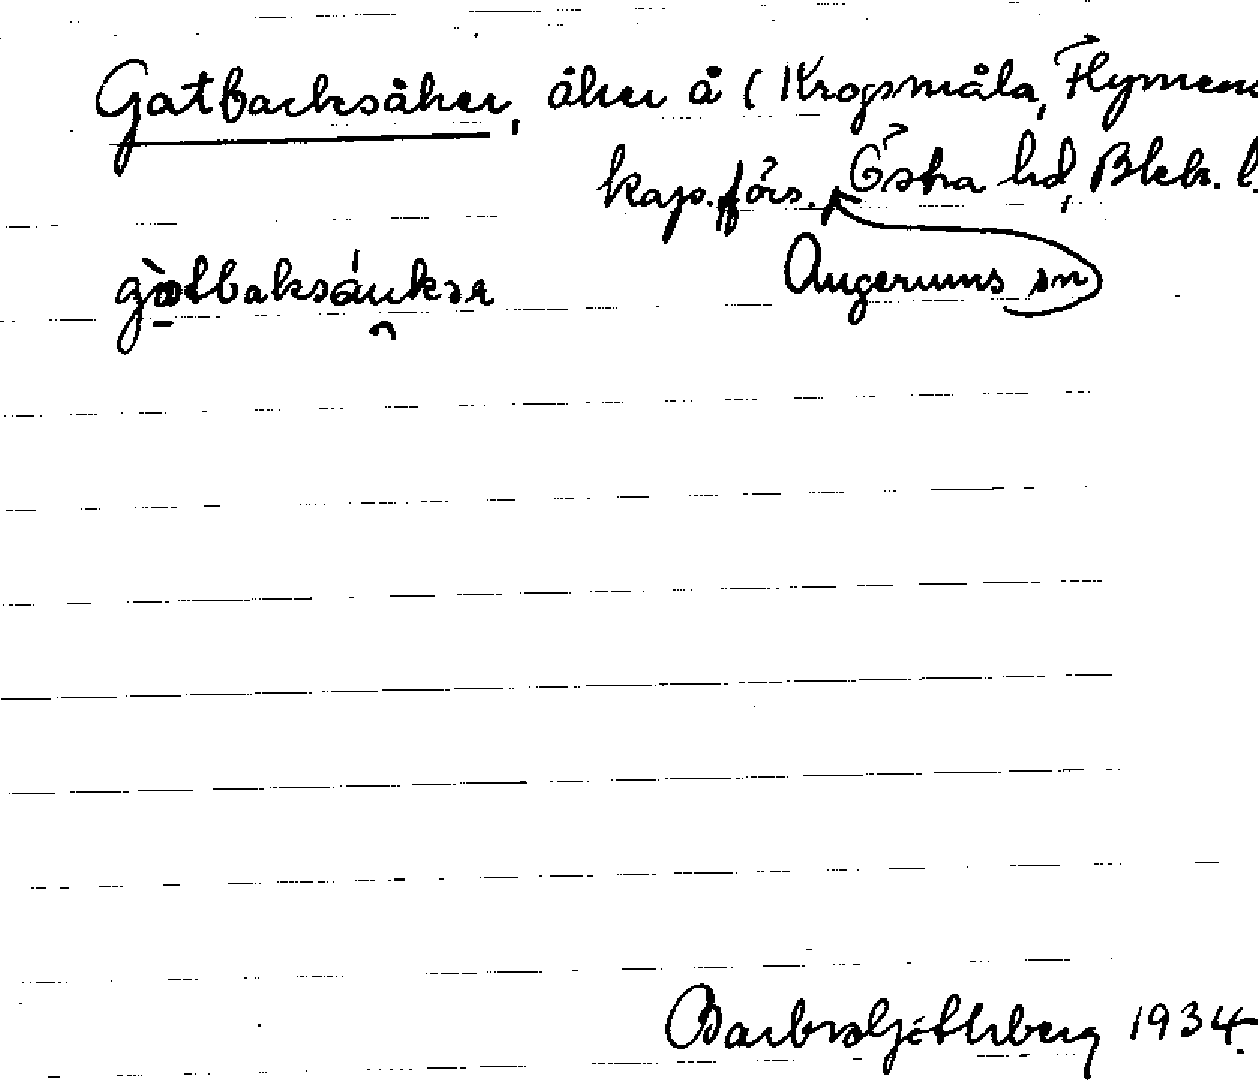 Gatbacksåker, åker å (Krogsmåla, Flymens
kap. förs. Östra hd, Blek. l.
Augerums sn
gatbaksåukər
Barbro Göthberg 1934.